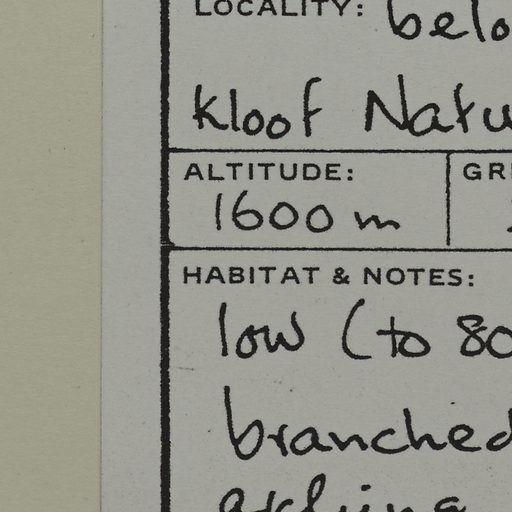 LOCALITY: belo
kloof Natu
ALTITUDE: GRI
1600 m
HABITAT & NOTES:
low (to 80
branched
arching